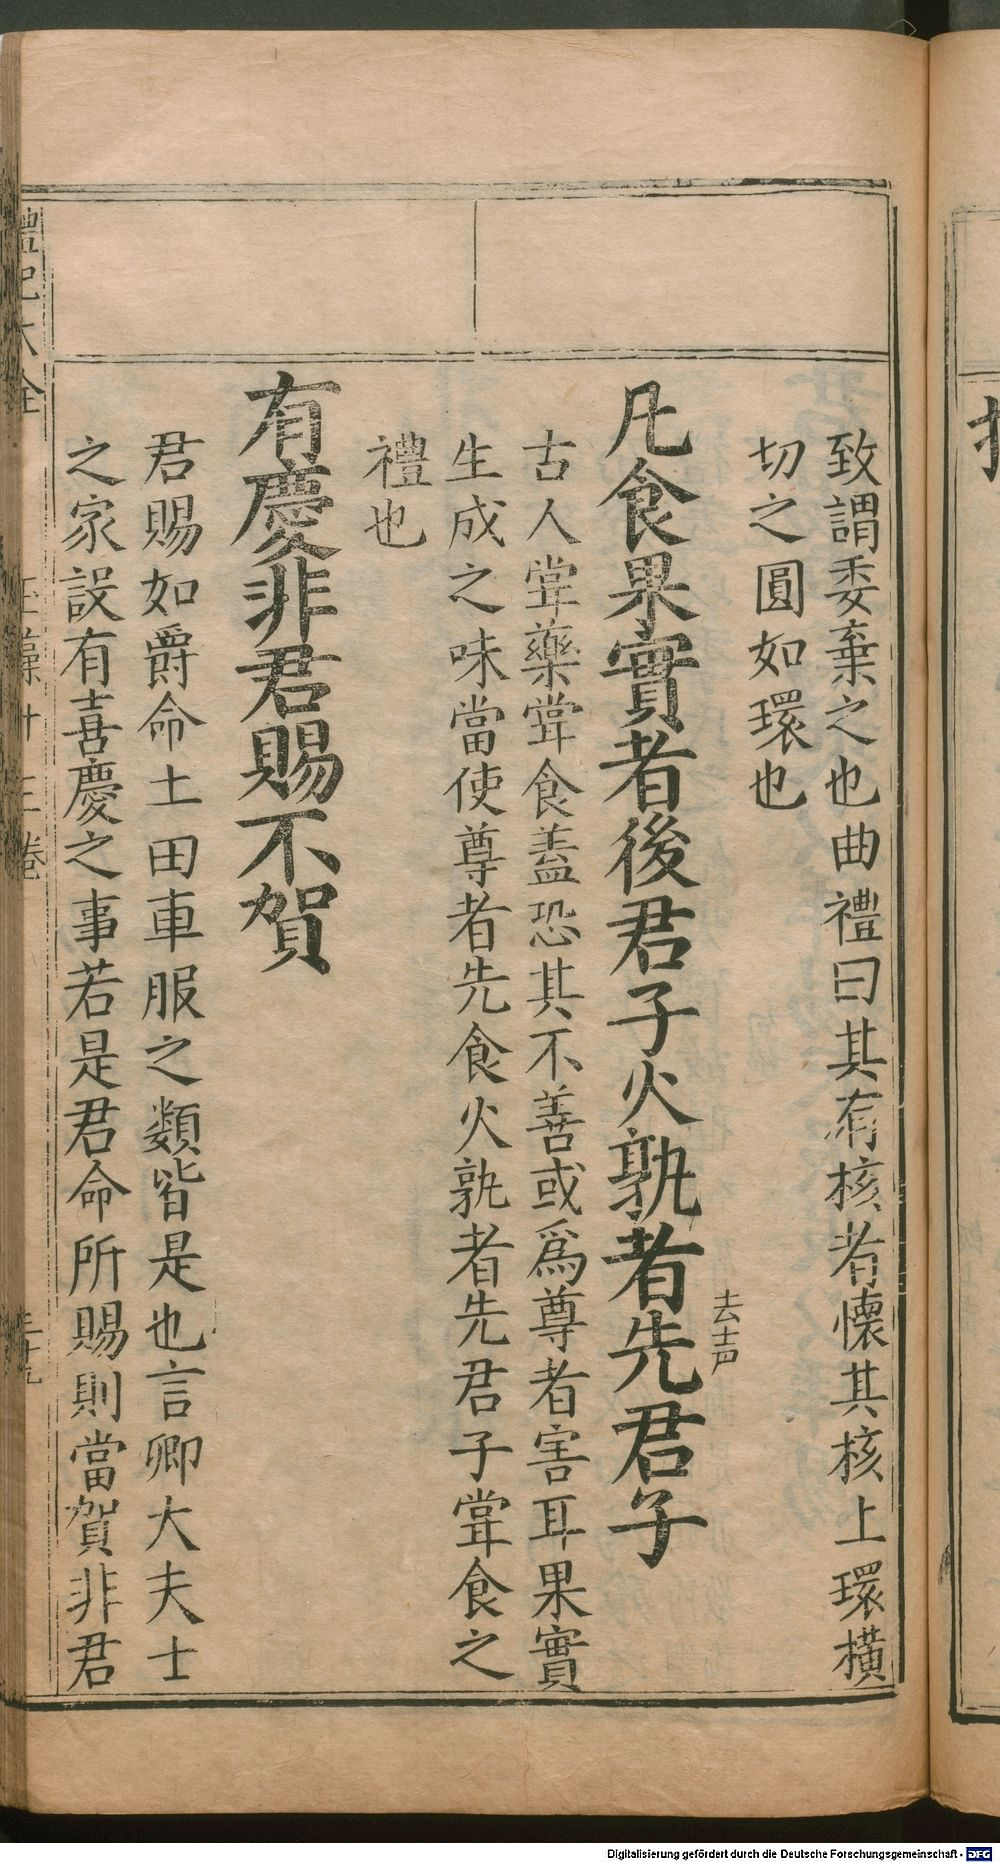 致謂委棄之也曲禮曰其有核者懷其核上環橫
切之圓如環也
凡食果實者後君子火孰者先君子
去声
古人甞藥甞食盖恐其不善或爲尊者害耳果實
生成之味當使尊者先食火孰者先君子甞食之
禮也
有慶非君賜不賀
君賜如爵命土田車服之類皆是也言卿大夫士
之家設有喜慶之事若是君命所賜則當賀非君
禮記大全
玉藻十三卷
三十九
Digitalisierung gefördert durch die Deutsche Forschungsgemeinschaft - DFG